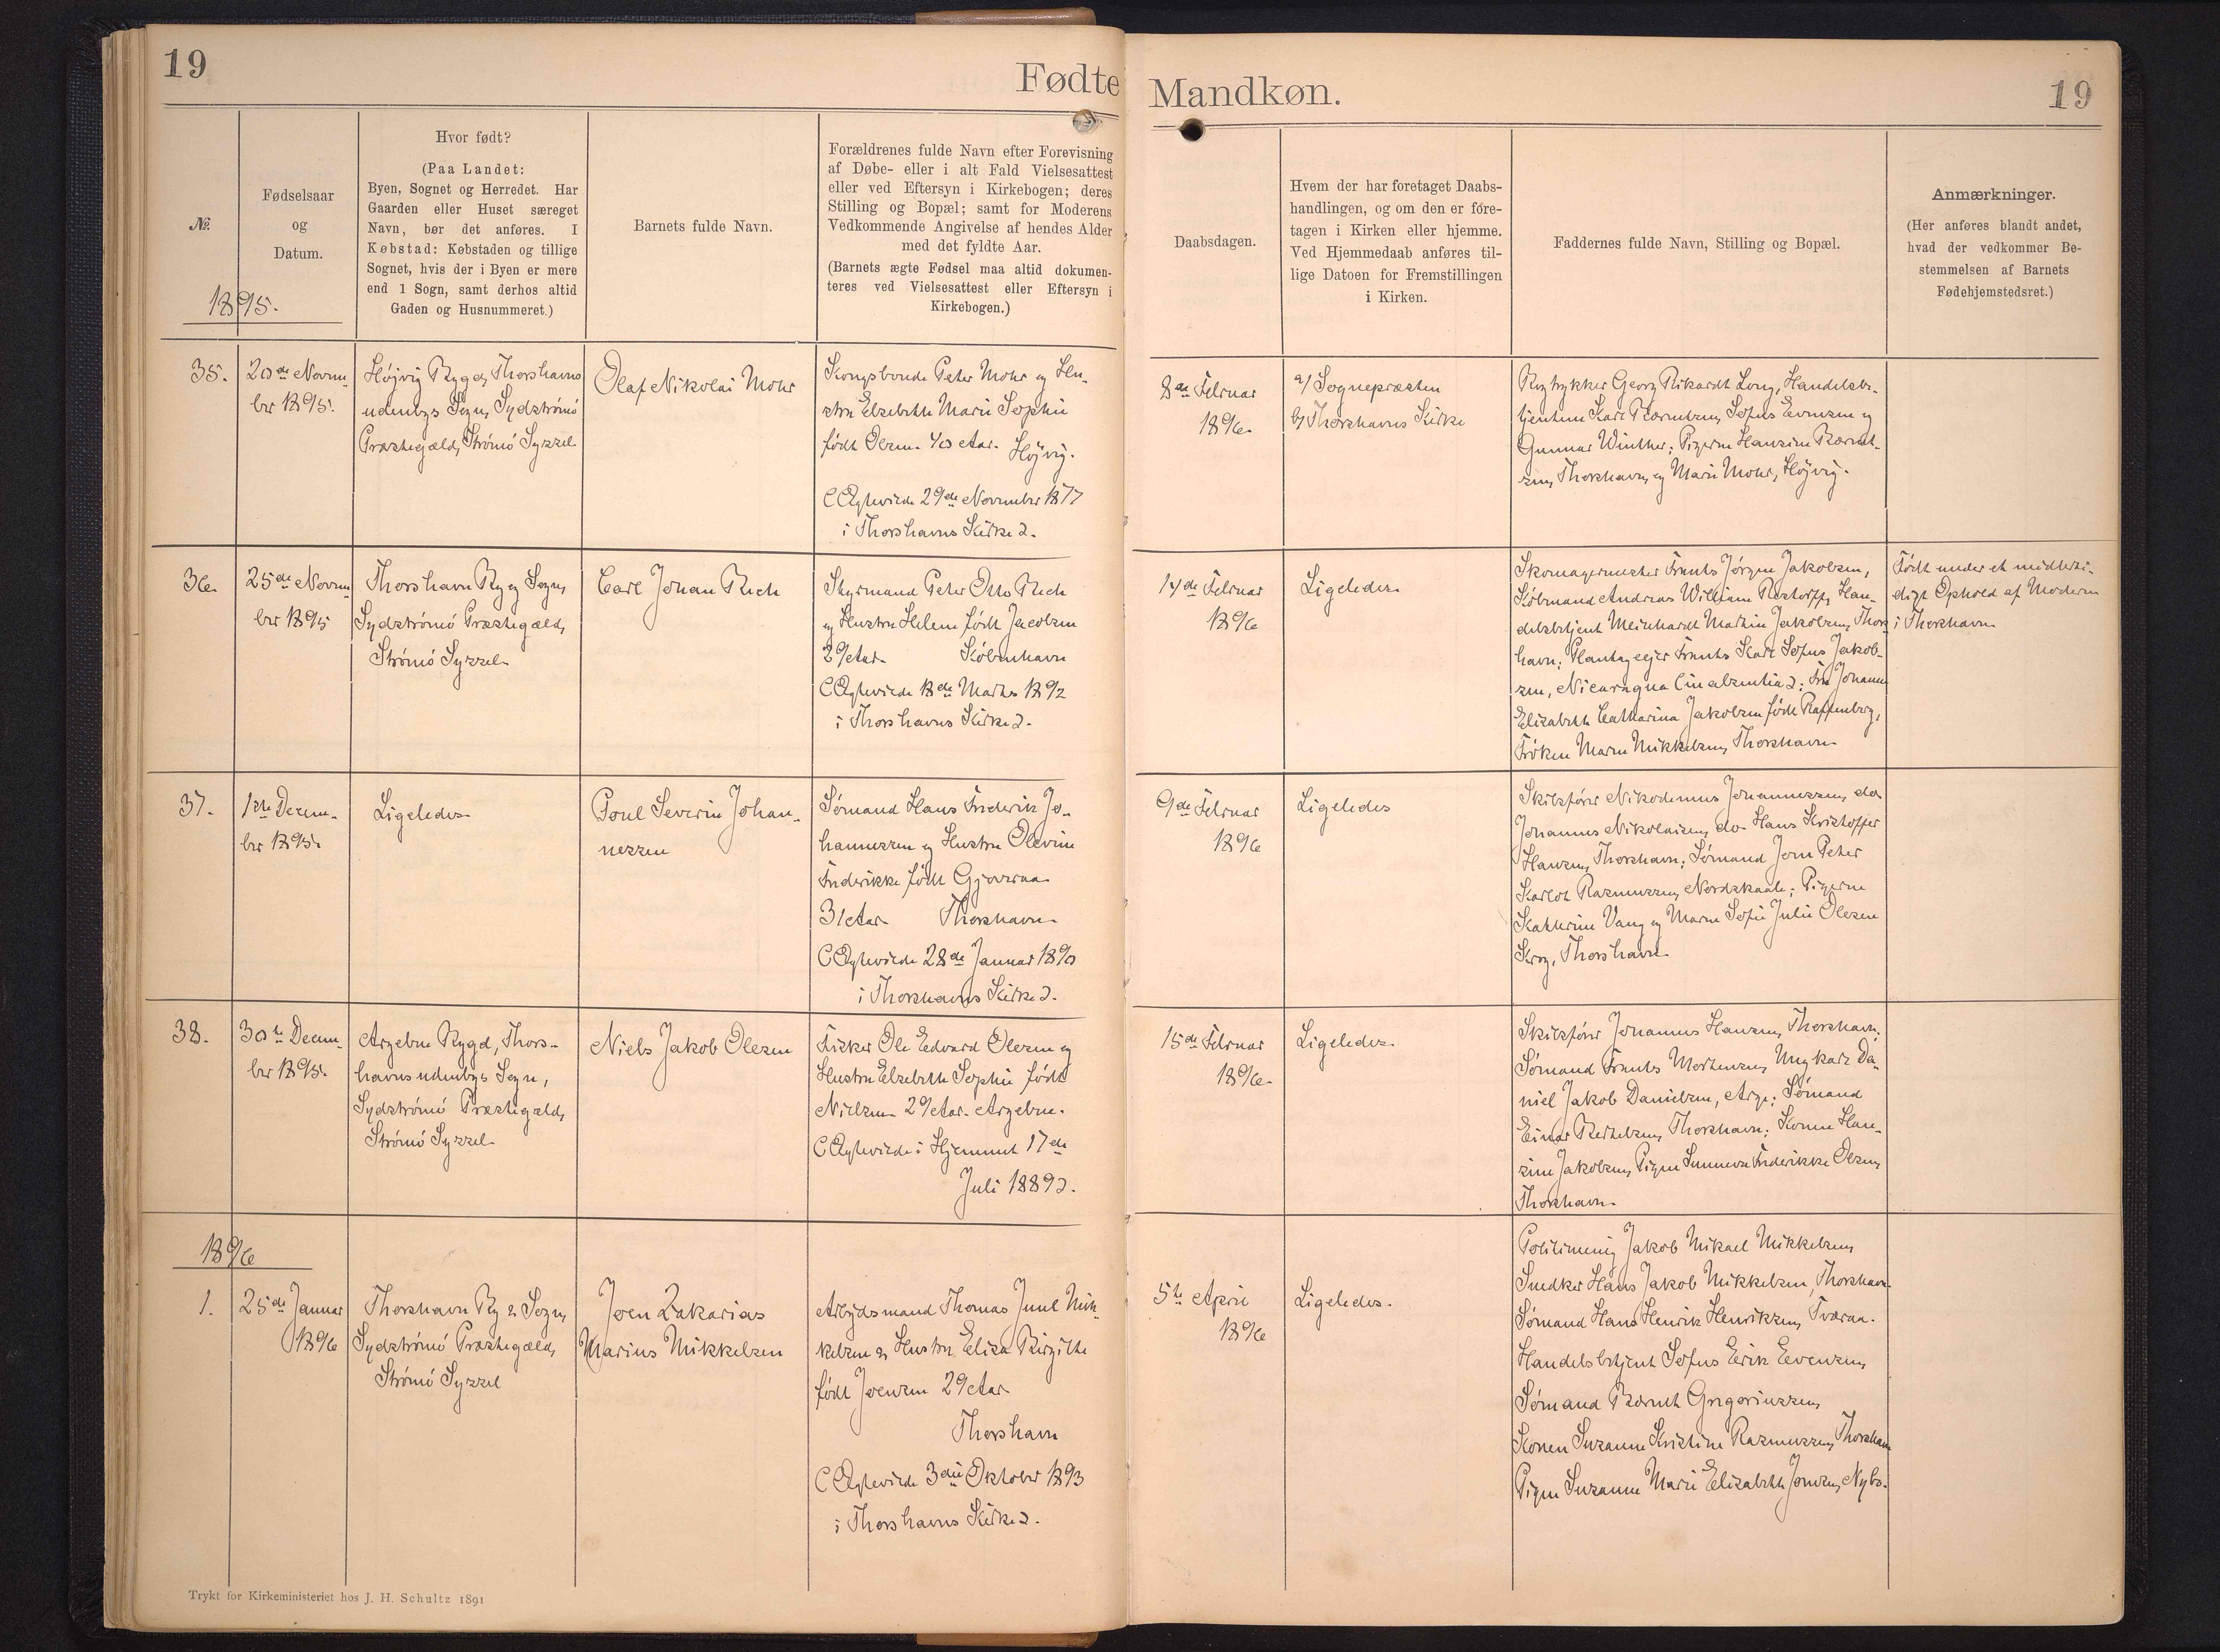 19
Fødte
Mandkøn.
19
№.
Fødselsaar
og
Datum.
Hvor født?
(Paa Landet:
Byen, Sognet og Herredet. Har
Gaarden eller Huset særeget
Navn, bør det anføres. I
Købstad: Købstaden og tillige
Sognet, hvis der i Byen er mere
end 1 Sogn, samt derhos altid
Gaden og Husnummeret.)
Barnets fulde Navn.
Forældrenes fulde Navn efter Forevisning
af Døbe- eller i alt Fald Vielsesattest
eller ved Eftersyn i Kirkebogen; deres
Stilling og Bopæl; samt for Moderens
Vedkommende Angivelse af hendes Alder
med det fyldte Aar.
(Barnets ægte Fødsel maa altid dokumen-
teres ved Vielsesattest eller Eftersyn i
Kirkebogen.)
Daabsdagen.
Hvem der har foretaget Daabs-
handlingen, og om den er fore-
tagen i Kirken eller hjemme.
Ved Hjemmedaab anføres til-
lige Datoen for Fremstillingen
i Kirken.
Faddernes fulde Navn, Stilling og Bopæl.
Anmærkninger.
(Her anføres blandt andet,
hvad der vedkommer Be-
stemmelsen af Barnets
Fødehjemstedsret.)
1895.
35.
20de Novem-
ber 1895.
Højvig Bygd, Thorshavns
udenbys Sogn, Sydstrømø
Præstegæld, Strømø Syssel
Olaf Nikolai Mohr
Kongsbonde Peter Mohr og Hu-
stru Elsebeth Marie Sophie
født Olsen. 40 Aar. Højvig.
(Ægteviede 29de November 1877
i Thorshavns Kirke).
8de Februar
1896.
a) Sognepræsten
b) Thorshavns Kirke
Bogtrykker Georg Rikardt Long, Handelsbe-
tjentene Karl Bærentsen, Sofus Evensen og
Gunnar Winther; Pigerne Hansine Bærent-
sen, Thorshavn, og Marie Mohr, Højvig.
36.
25de Novem-
ber 1895
Thorshavn By og Sogn,
Sydstrømø Præstegæld,
Strømø Syssel.
Carl Johan Bech
Styrmand Peter Otto Bech
og Hustru Helene født Jacobsen
29 Aar. København
(Ægteviede 18de Marts 1892
i Thorshavns Kirke).
14de Februar
1896
Ligeledes.
Skomagermester Frants Jørgen Jakobsen,
Købmand Andreas William Restorff, Han-
delsbetjent Meinhardt Martin Jakobsen, Thors-
havn; Plantageejer Frants Karl Sofus Jakob-
sen, Nicaragua (in absentia); Fru Johanne
Elisabeth Catharina Jakobsen født Raffenberg,
Frøken Maren Mikkelsen, Thorshavn.
Født under et midlerti-
digt Ophold af Moderen
i Thorshavn.
37.
1ste Decem-
ber 1895.
Ligeledes.
Poul Severin Johan-
nessen
Sømand Hans Frederik Jo-
hannessen og Hustru Olevine
Frederikke født Gjoveraa
31 Aar. Thorshavn.
(Ægteviede 28de Januar 1890
i Thorshavns Kirke).
9de Februar
1896
Ligeledes
Skibsfører Nikodemus Johannessen, do
Johannes Nikolaisen, do. Hans Kristoffer
Hansen, Thorshavn; Sømand Joen Peter
Karlot Rasmussen, Nordskaale; Pigerne
Kathrine Vang og Maren Sofie Julie Olesen
Krog, Thorshavn.
38.
30te Decem-
ber 1895.
Argebø Bygd, Thors-
havns udenbys Sogn,
Sydstrømø Præstegæld,
Strømø Syssel.
Niels Jakob Olesen
Fisker Ole Edvard Olesen og
Hustru Elsebeth Sophie født
Nielsen. 29 Aar. Argebø.
(Ægteviede i Hjemmet 17de
Juli 1889).
15de Februar
1896.
Ligeledes.
Skibsfører Johannes Hansen, Thorshavn;
Sømand Frants Mortensen, Ungkarl Da-
niel Jakob Danielsen, Arge; Sømand
Einar Berthelsen, Thorshavn; Konen Han-
sine Jakobsen, Pigen Sunneva Frederikke Olsen,
Thorshavn.
1896
1.
25de Januar
1896
Thorshavn By & Sogn,
Sydstrømø Præstegæld,
Strømø Syssel
Joen Zakarias
Marius Mikkelsen
Arbejdsmand Thomas Juul Mik-
kelsen & Hustru Elisa Birgithe
født Joensen 29 Aar
Thorshavn
(Ægteviede 3die Oktober 1893
i Thorshavns Kirke).
5te April
1896
Ligeledes.
Politimenig Jakob Mikael Mikkelsen,
Snedker Hans Jakob Mikkelsen, Thorshavn
Sømand Hans Henrik Henriksen, Tværaa.
Handelsbetjent Sofus Eirik Evensen,
Sømand Berent Gregoriussen,
Konen Susanne Kristine Rasmussen, Thorshavn
Pigen Susanne Marie Elisabeth Joensen, Nybø.
Trykt for Kirkeministeriet hos J. H. Schultz 1891